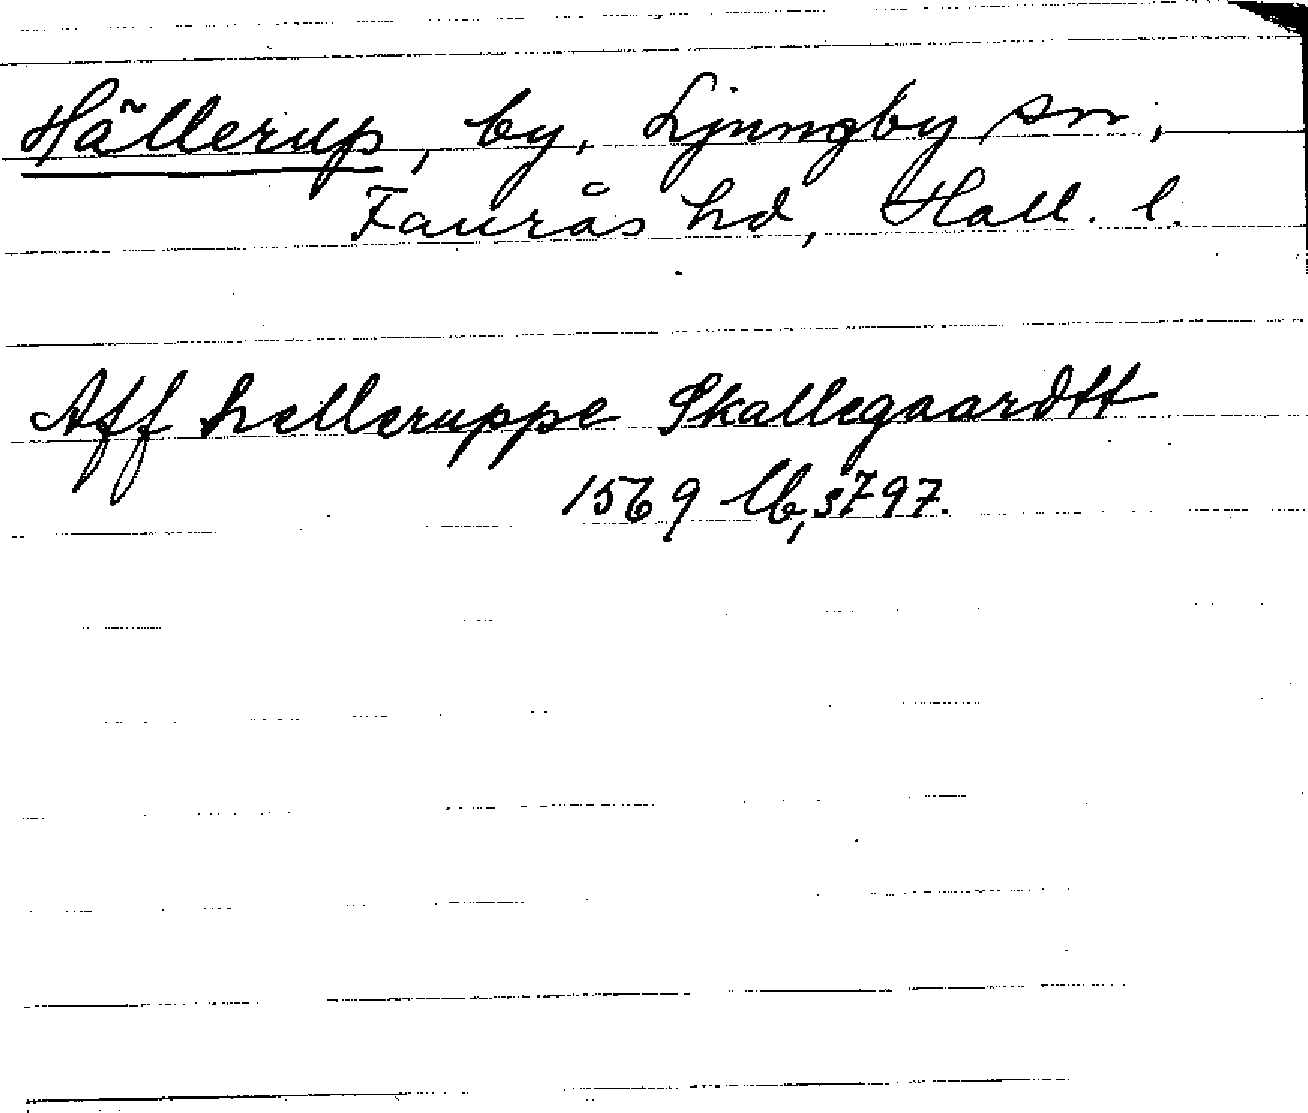 Hällerup, by, Ljungby sn,
Faurås hd, Hall. l.
Aff helleruppe Skallegaardtt
1569 lb, s 797.